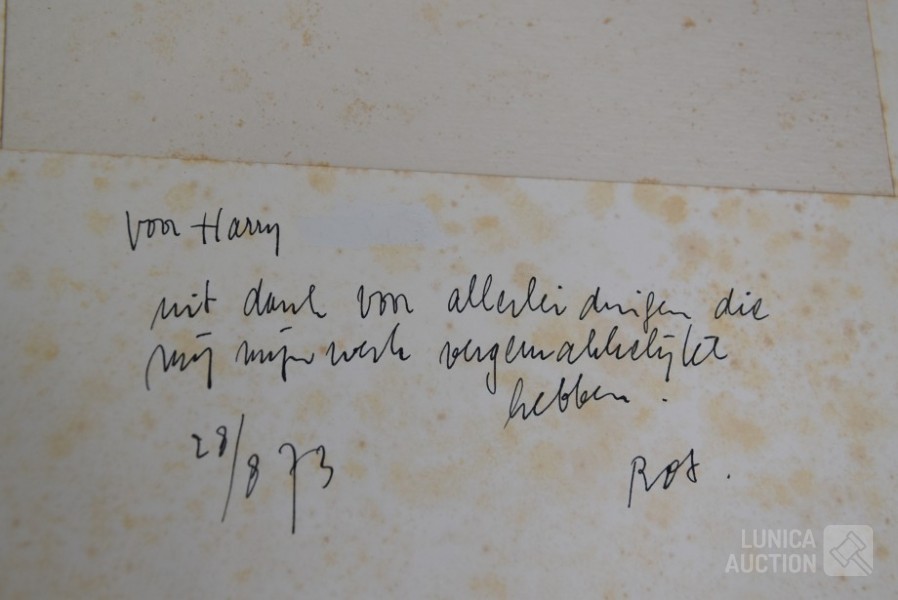 voor Harry
uit dank voor allerlei dingen die
mij mijn werk vergemakkelijkt
hebben.
28/8 73
Rot.
LUNICA
AUCTION